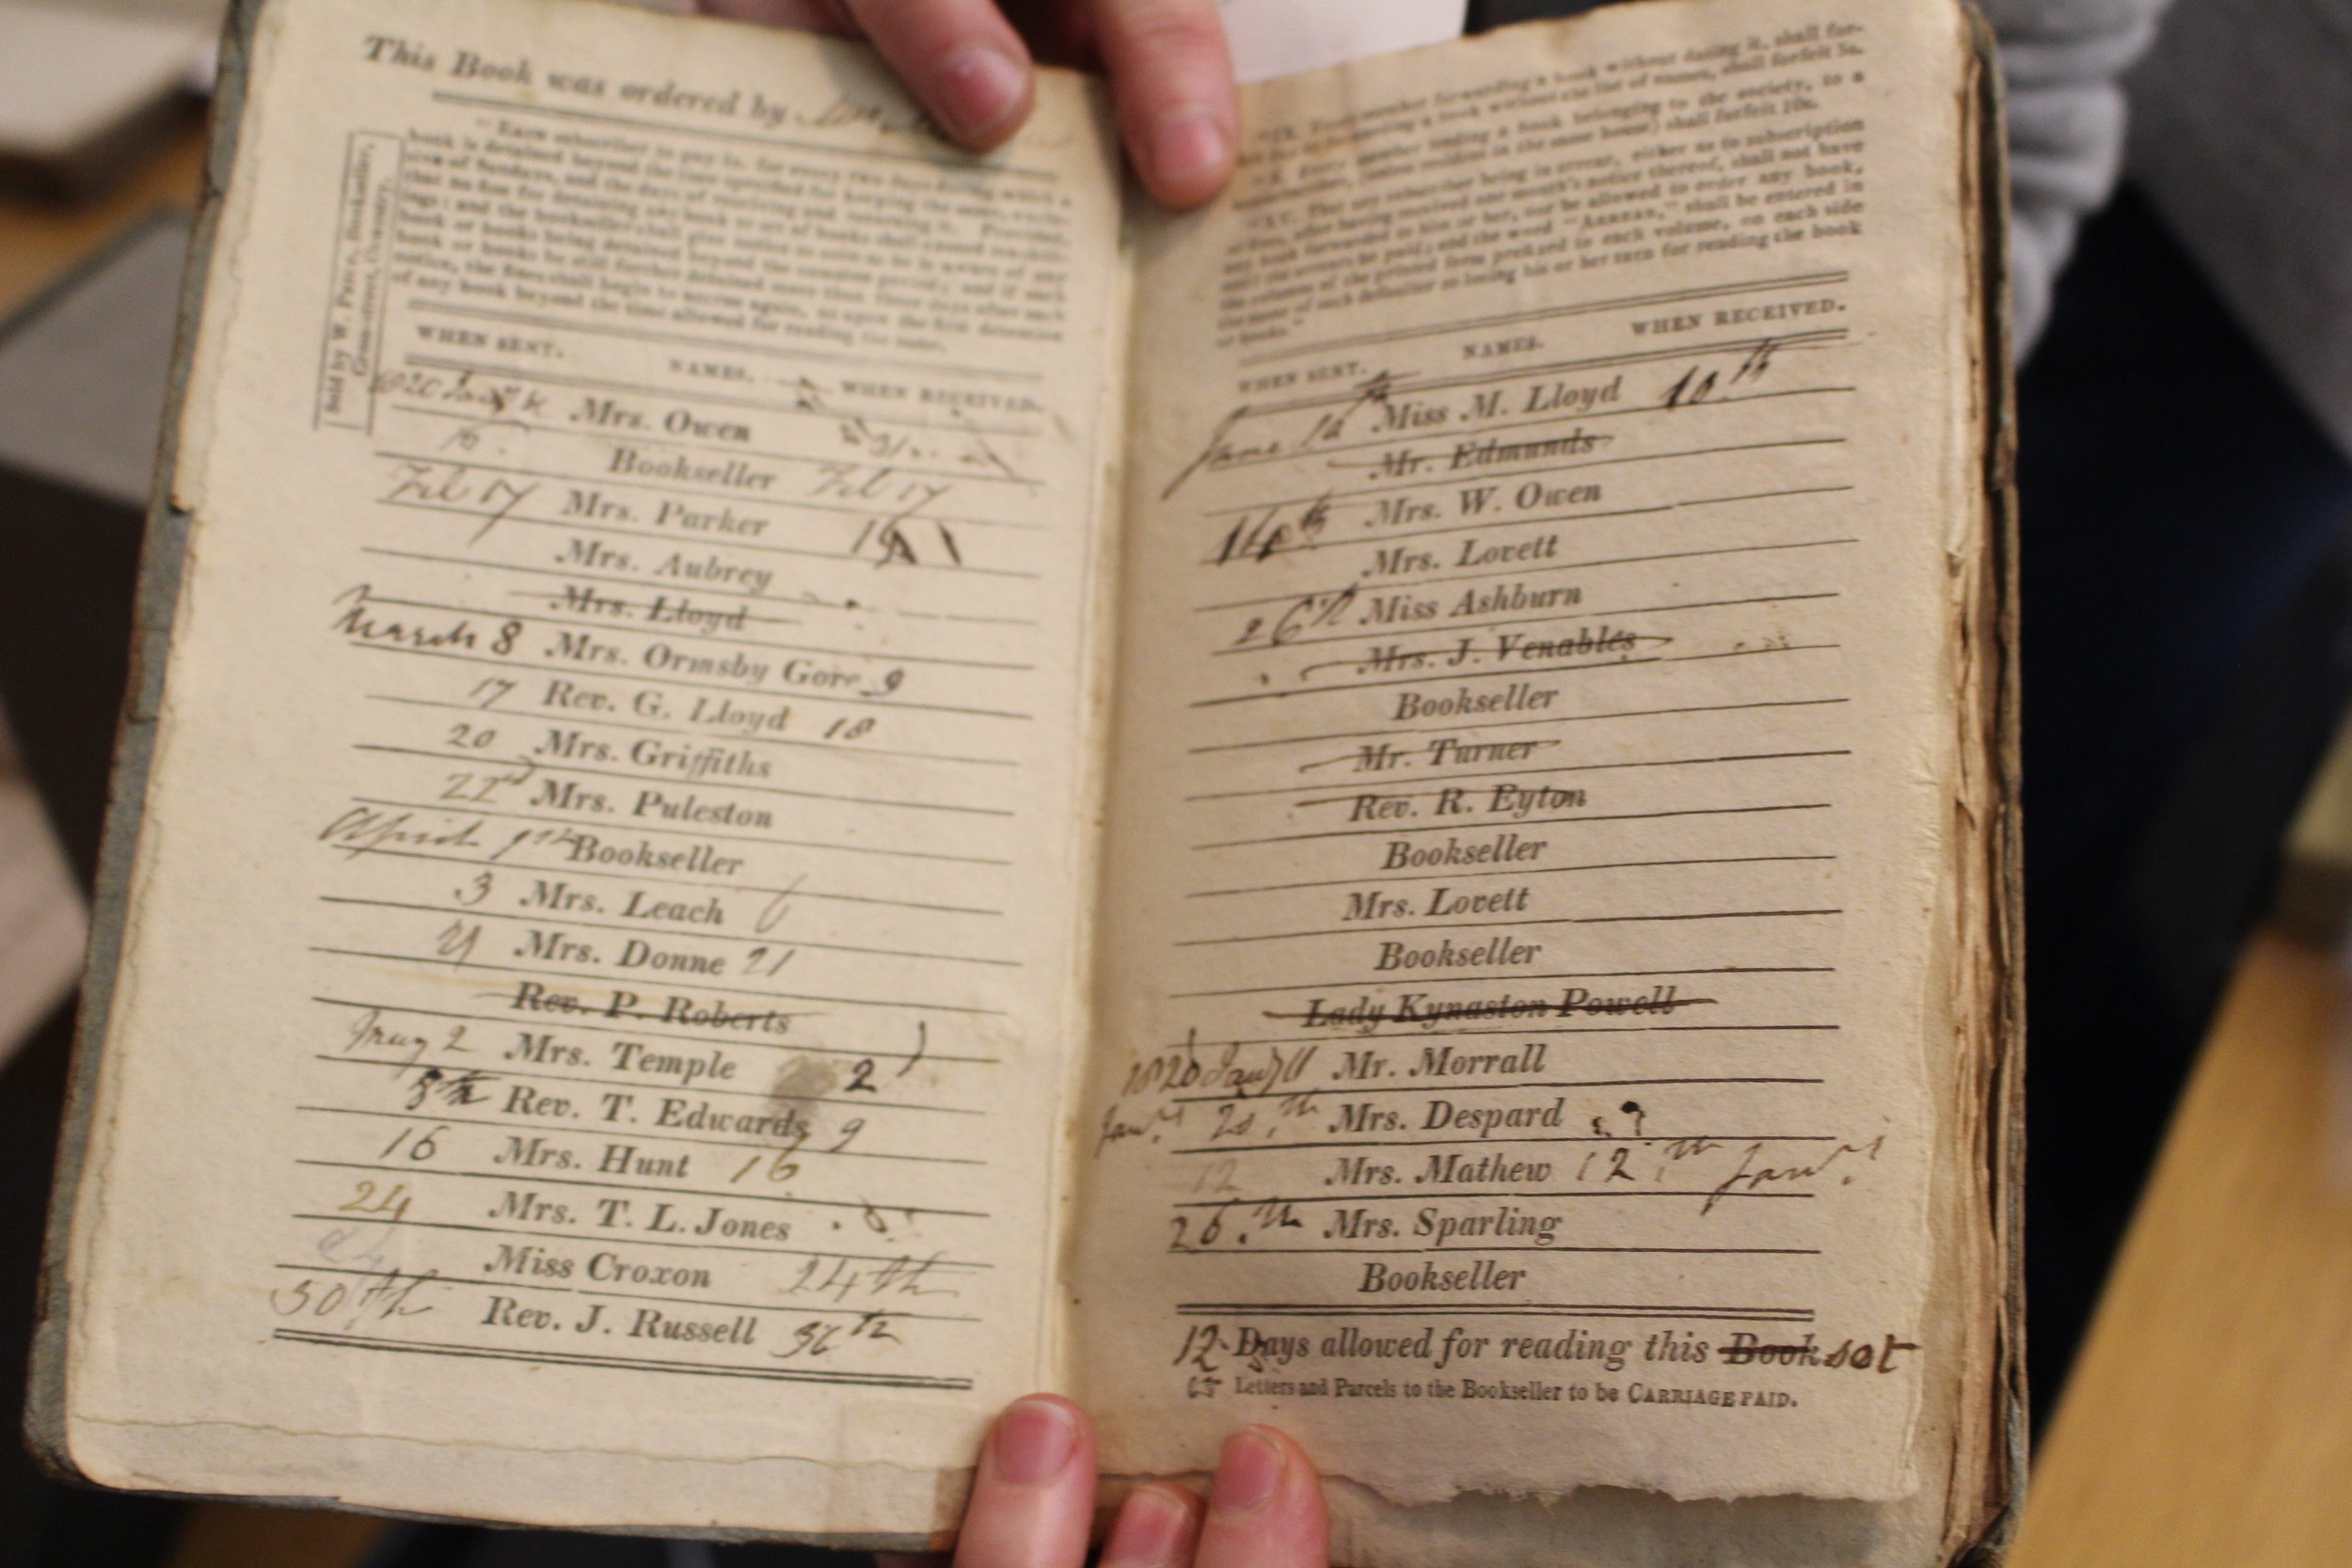 This Book was ordered by
Sold by W. Price, Bookseller,
Oswestry.
"Each subscriber to pay 1s. for every two days during which a
book is detained beyond the time specified for keeping the same, exclu-
sive of Sundays, and the days of receiving and forwarding it. Provided,
that no fine for detaining any book or set of books shall exceed ten shil-
lings: and the bookseller shall give notice as soon as he is aware of any
book or books being detained beyond the assigned period; and if such
book or books be still further detained more than three days after such
notice, the fines shall begin to accrue again, as upon the first detention
of any book beyond the time allowed for reading the same.
WHEN SENT. NAMES. WHEN RECEIVED.
Mrs. Owen
16. Bookseller Feb 17
Feb 17 Mrs. Parker 19
Mrs. Aubrey
Mrs. Lloyd
March 8 Mrs. Ormsby Gore 9
17 Rev. G. Lloyd 18
20 Mrs. Griffiths
22nd Mrs. Puleston
April 1st Bookseller
3 Mrs. Leach 6
21 Mrs. Donne 21
Rev. P. Roberts
May 2 Mrs. Temple 2
Rev. T. Edwards 9
16 Mrs. Hunt 16
24 Mrs. T. L. Jones
24 Miss Croxon 24th
30th Rev. J. Russell 30th
forwarding a book without dating it, shall for-
a book without the list of names, shall forfeit 5s.
lending a book belonging to the society, to a
(unless resident in the same house) shall forfeit 10s.
"XV. That any subscriber being in arrear, either as to subscription
or fines, after having received one month's notice thereof, shall not have
any book forwarded to him or her, nor be allowed to order any book,
until the arrears be paid; and the word "Arrear," shall be entered in
the columns of the printed form prefixed to each volume, on each side
the name of such defaulter so losing his or her turn for reading the book
or books."
WHEN SENT. NAMES. WHEN RECEIVED.
June Miss M. Lloyd 10th
Mr. Edmunds
14th Mrs. W. Owen
Mrs. Lovett
26th Miss Ashburn
Mrs. J. Venables
Bookseller
Mr. Turner
Rev. R. Eyton
Bookseller
Mrs. Lovett
Bookseller
Lady Kynaston Powell
1820 Jany 11 Mr. Morrall
Jany. 20th Mrs. Despard
12 Mrs. Mathew 12th Jany.
26.th Mrs. Sparling
Bookseller
12 Days allowed for reading this Book set
Letters and Parcels to the Bookseller to be CARRIAGE PAID.